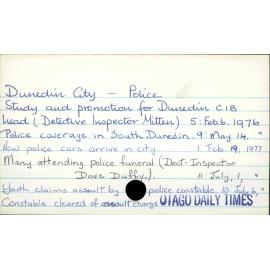 Dunedin City - Police
Study and promotion for Dunedin CIB
head (Detective Inspector Mitten) 5: Feb. 6. 1976
Police coverage in South Dunedin. 9: May 14. "
New police cars arrive in city 1: Feb. 19, 1977
Many attending police funeral (Dect-Inspector
Dave Duffy.). 11: July, 1, "
Youth claims assault by police constable. 10: July 6, "
Constable cleared of assault charge OTAGO DAILY TIMES